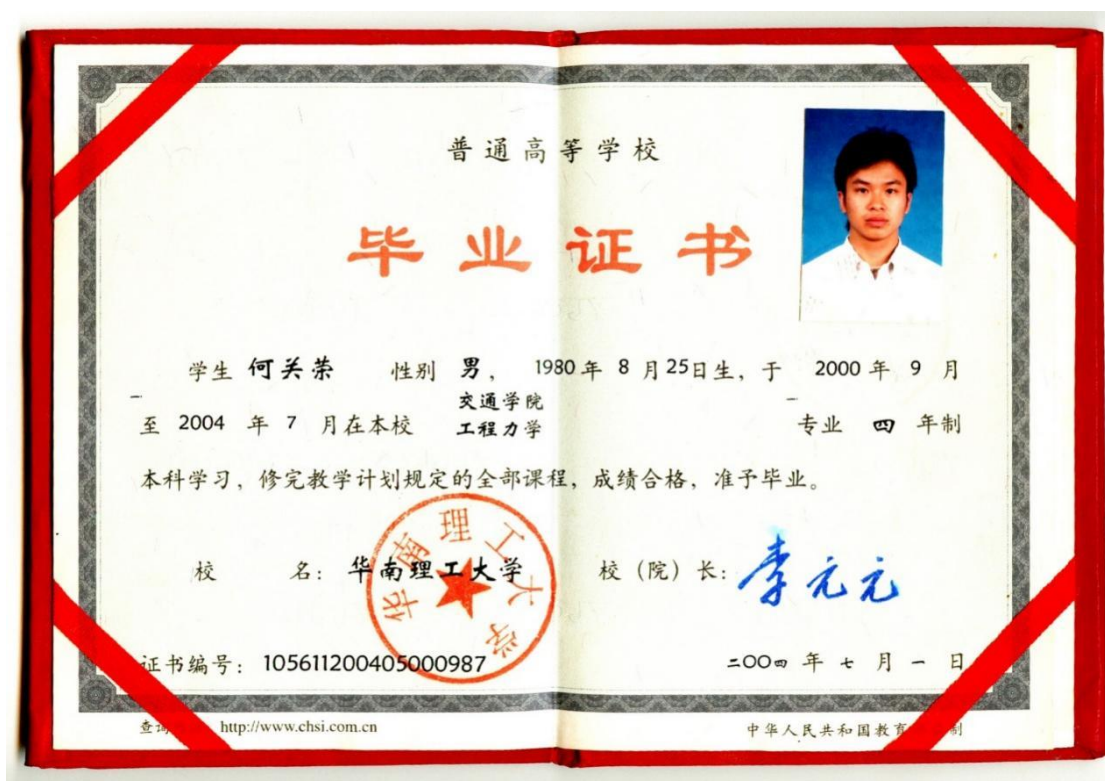 普通高等学校
毕业证书
学生 何关荣 性别 男， 1980 年 8 月 25 日生，于 2000 年 9 月
交通学院
至 2004 年 7 月在本校 工程力学 专业 四 年制
本科学习，修完教学计划规定的全部课程，成绩合格，准予毕业。
校 名：华南理工大学 校（院）长：李元元
华南理工大学
证书编号：105611200405000987 二〇〇四 年 七 月 一 日
http://www.chsi.com.cn 中华人民共和国教育